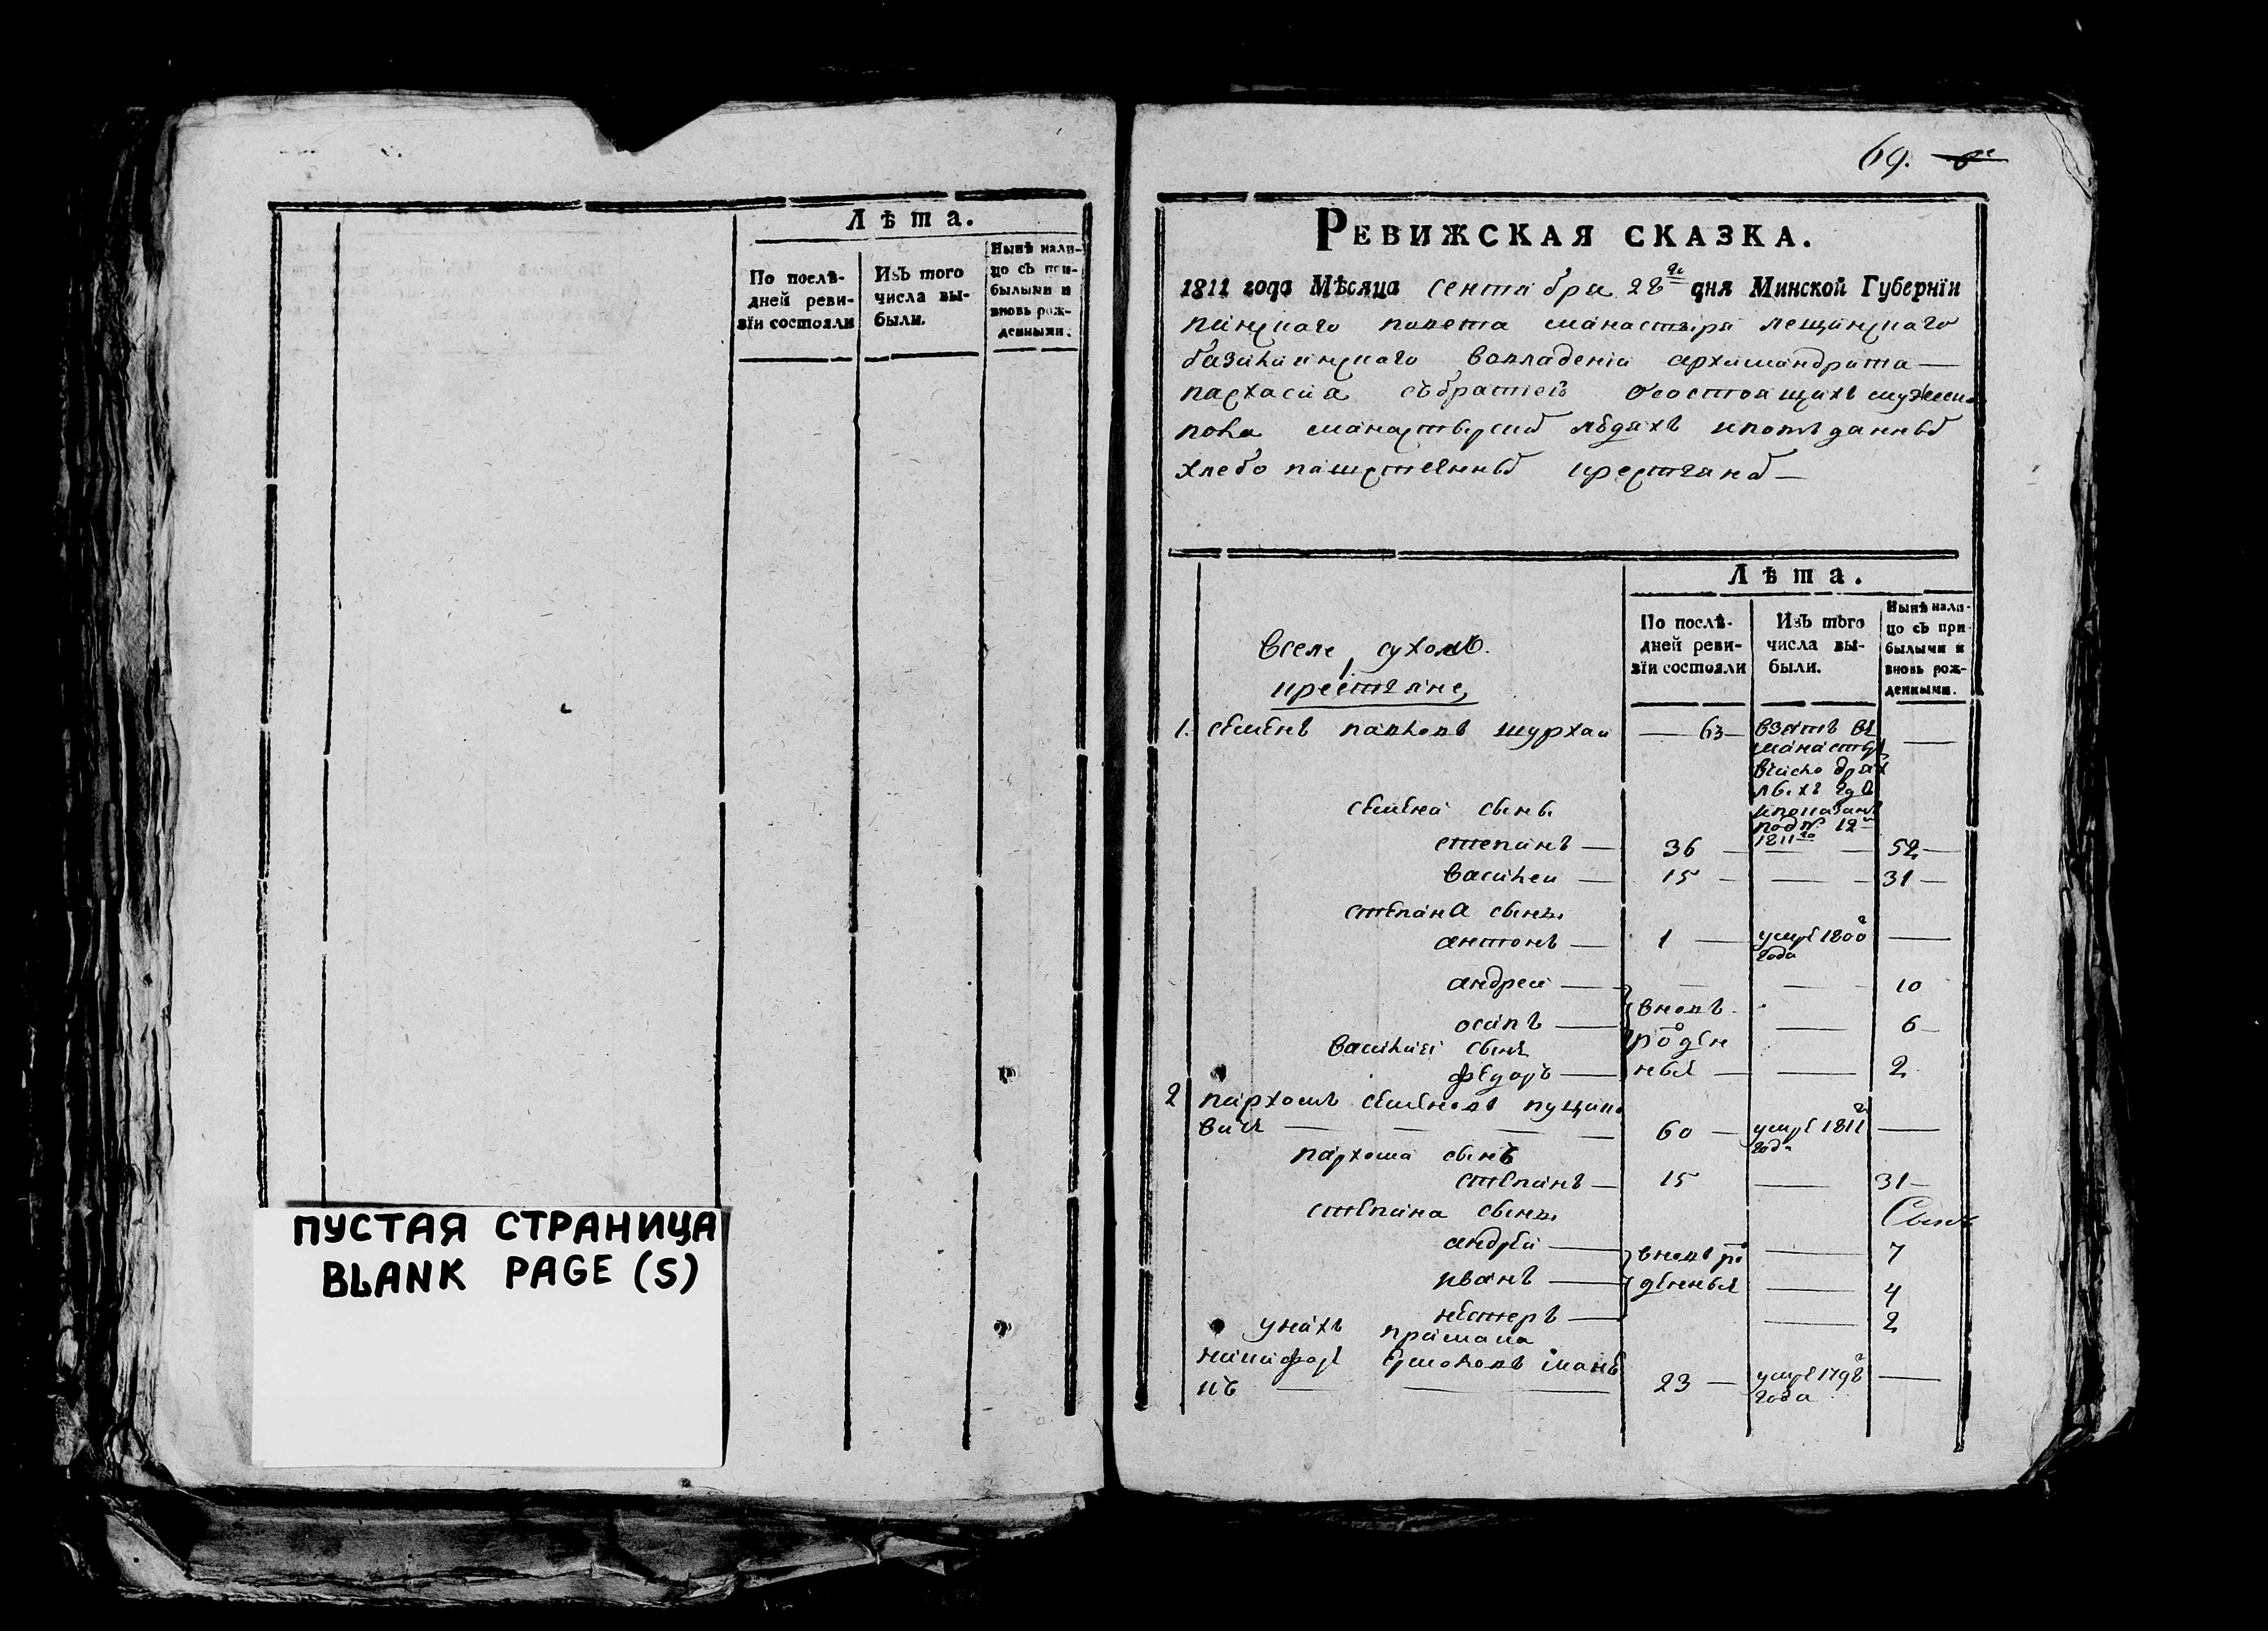 Лѣта.
По послѣ-
дней реви-
зїи состояли
Изъ того
числа вы-
были.
Нынѣ нали-
цо съ при-
былыми и
вновь рож-
денными.
ПУСТАЯ СТРАНИЦА
BLANK PAGE (S)
69.
РЕВИЖСКАЯ СКАЗКА.
1811 года Мѣсяца сентября 28 дня Минской Губернїи
пинскаго повета манастыря лещинскаго
базилиинскаго вовладении архимандрита
пасхасия събратиею осостоящихъ мужеска
пола манастырскихъ людяхъ
хлебопашественныхъ крестянахъ
Лѣта.
По послѣ-
дней реви-
зїи состояли
Изъ того
числа вы-
были.
Нынѣ нали-
цо съ при
былыми и
вновь рож-
денными.
Вселе сухомъ.
крестяне,
1. семенъ павловъ шурхаи — 63 — взятъ въ —
манастыр
семена сыны
подъ № 12
1811го
степанъ — 36 — 52 —
василеи — 15 — 31 —
степана сыны
антонъ — 1 — умре 1800 —
года
андреи — 10
вновь
осипъ — 6 —
рожден
василия сынъ
федоръ — ные — 2
2 пархомъ семеновъ пущико
вичъ — 60 — умре 1811 —
года
пархома сынъ
степанъ — 15 — 31 —
степана сыны
андреи — вновь рож — 7
иванъ — денные — 4
нестеръ — 2
унихъ приимака
никифоръ ермоловъ
23 — умре 1798 —
года